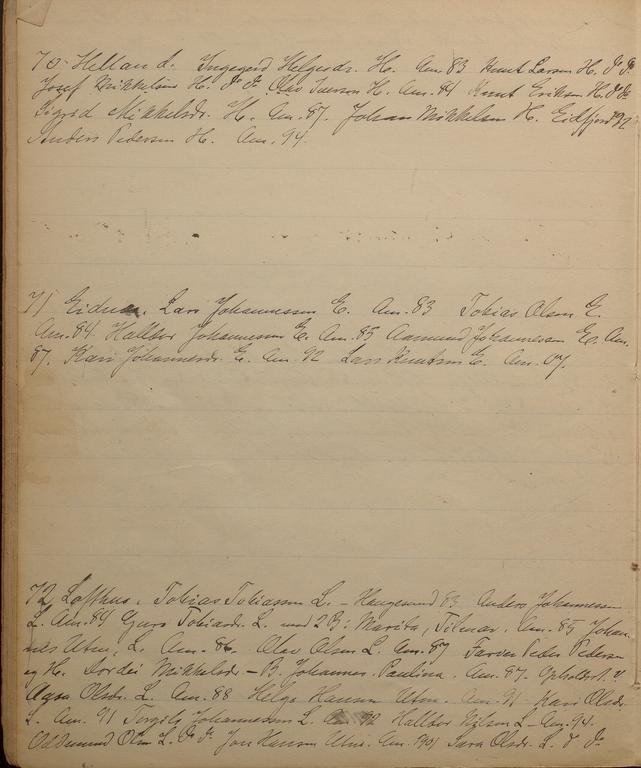 70. Helland. Ingegerd Helgesdr. H. Am. 83 Knut Larsen H. d° d°
Josef Mikkelsen H. d° d°. Olav Iverson H. Am. 84 Knut Eriksen H. d° d°
Sigrid Mikkelsdr. H. Am. 87. Johan Mikkelsen H. Eidfjord 92
Anders Pedersen H. Am. 94.
71 Eidnes. Lars Johannessen E. Am. 83 Tobias Olsen E.
Am. 84. Halbor Johannessen E. Am. 85 Aamund Johannessen E. Am.
87. Kari Johannesdr. E. Am. 92 Lars Knutsen E. Am. 07.
72 Lofthus. Tobias Tobiassen L. – Haugesund 83 Anders Johannessen
L. Am. 84 Guro Tobiasdr. L. med 2 B: Marita, Tilmar. Am. 85 Johan
nes Utne, L. Am. 86. Olav Olsen L. Am. 87 Farver Peder Pedersen
og H. Dordei Mikkelsdr – B. Johannes. Paulina. Am. 87.
Agsa Olsdr. L. Am. 88 Helge Hansen Utne. Am. 91 Kari Olsdr.
L. Am. 91 Torgils Johannessen L. 92 Halbor Nilsen L – Am. 94.
Oddmund Olsen L. d° d° Jon Hansen Utne. Am. 1901 Sara Olsdr. L. d° d°